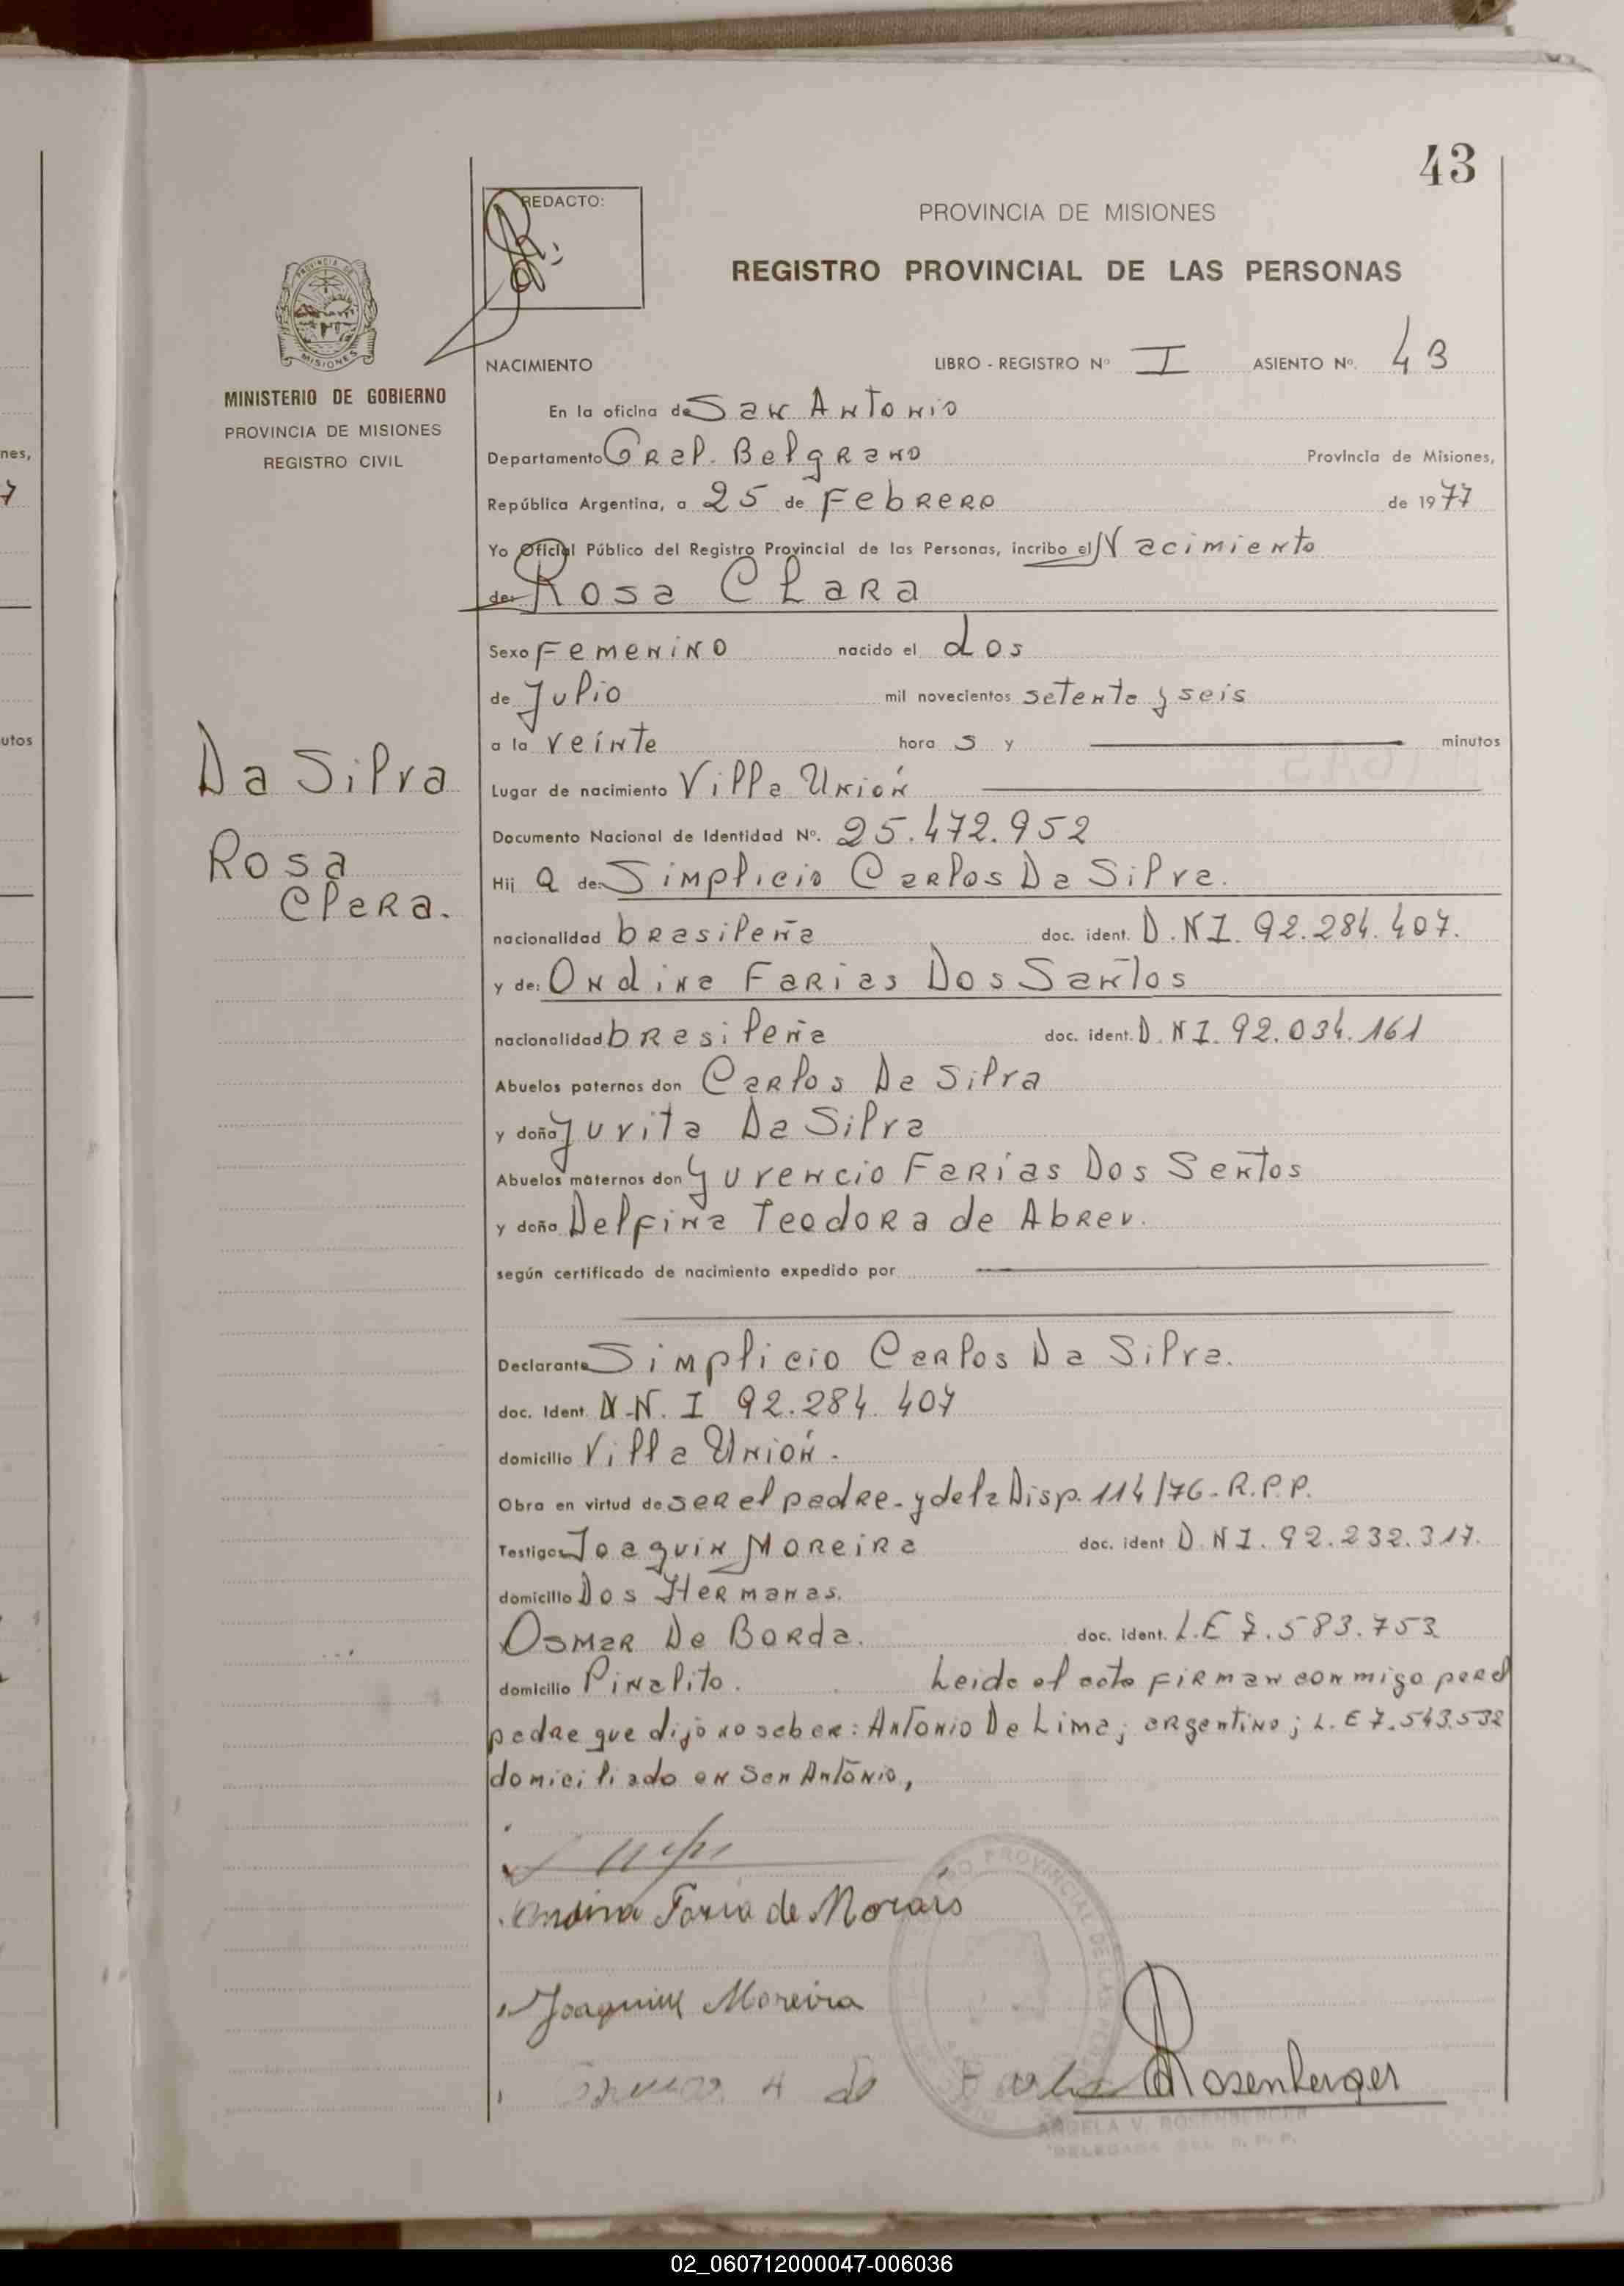 43
REDACTO:
PROVINCIA DE MISIONES
REGISTRO PROVINCIAL DE LAS PERSONAS
PROVINCIA DE
MISIONES
MINISTERIO DE GOBIERNO
PROVINCIA DE MISIONES
REGISTRO CIVIL
nes,
7
utos
NACIMIENTO LIBRO - REGISTRO Nº I ASIENTO Nº. 43
En la oficina de San Antonio
Departamento Gral. Belgrano Provincia de Misiones,
República Argentina, a 25 de Febrero de 1977
Yo Oficial Público del Registro Provincial de las Personas, incribo el Nacimiento
de: Rosa Clara
Sexo Femenino nacido el dos
de Julio mil novecientos setenta y seis
a la veinte hora s y minutos
Da Silva
Lugar de nacimiento Villa Unión
Documento Nacional de Identidad Nº. 25.472.952
Rosa
Clara.
Hij a de: Simplicio Carlos Da Silva.
nacionalidad brasileña doc. ident. D.N.I. 92.284.407.
y de: Ondina Farias Dos Santos
nacionalidad brasileña doc. ident. D.N.I. 92.034.161
Abuelos paternos don Carlos Da Silva
y doña Juvita Da Silva
Abuelos maternos don Juvencio Farias Dos Santos
y doña Delfina Teodora de Abreu.
según certificado de nacimiento expedido por
Declarante Simplicio Carlos Da Silva.
doc. Ident. D.N.I 92.284.407
domicilio Villa Unión.
Obra en virtud de ser el padre - y de la Disp. 114/76 - R.P.P.
Testigos Joaquin Moreira doc. ident D.N.I. 92.232.317.
domicilio Dos Hermanas.
Osmar De Borda. doc. ident. L.E 7.583.753
domicilio Pinalito. Leida el acta firman conmigo por el
padre que dijo no saber: Antonio De Lima; argentino; L.E 7.543.532
domiciliado en San Antonio,
Ondina Faria de Morais
Joaquim Moreira
Rosenberger
ANGELA V. ROSENBERGER
DELEGADA DEL R. P. P.
02_060712000047-006036